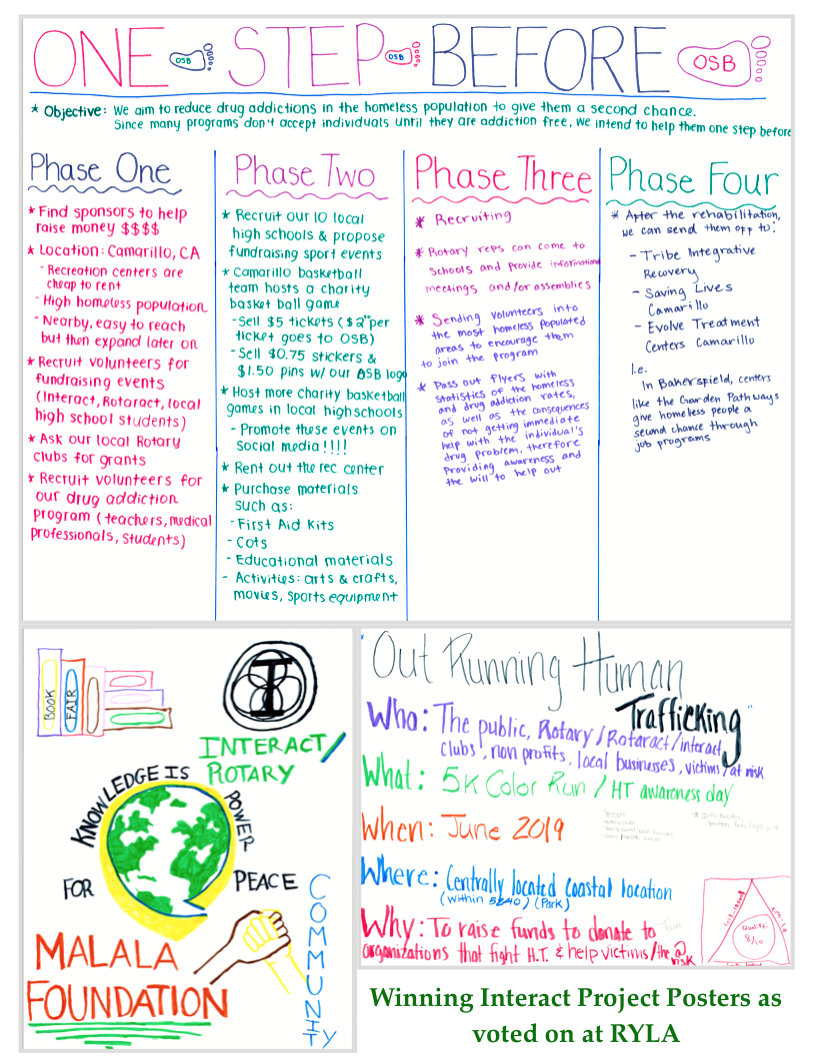 ONE STEP BEFORE
OSB
OSB
OSB
* Objective: We aim to reduce drug addictions in the homeless population to give them a second chance.
Since many programs don't accept individuals until they are addiction free, we intend to help them one step before
Phase One
* Find sponsors to help
raise money $$$$
* Location: Camarillo, CA
- Recreation centers are
cheap to rent
- High homeless population
- Nearby, easy to reach
but then expand later on
* Recruit volunteers for
fundraising events
(Interact, Rotaract, local
high school students)
* Ask our local Rotary
clubs for grants
* Recruit volunteers for
our drug addiction
program (teachers, medical
professionals, students)
Phase Two
* Recruit our 10 local
high schools & propose
fundraising sport events
* Camarillo basketball
team hosts a charity
basket ball game
- Sell $5 tickets ($2 per
ticket goes to OSB)
- Sell $0.75 stickers &
$1.50 pins w/ our OSB logo
* Host more charity basketball
games in local highschools
- Promote these events on
Social media!!!!
* Rent out the rec center
* Purchase materials
such as:
- First Aid Kits
- Cots
- Educational materials
- Activities: arts & crafts,
movies, sports equipment
Phase Three
* Recruiting
* Rotary reps can come to
schools and provide information
meetings and/or assemblies
* Sending volunteers into
the most homeless populated
areas to encourage them
to join the program
* Pass out flyers with
statistics of the homeless
and drug addiction rates,
as well as the consequences
of not getting immediate
help with the individual's
drug problem, therefore
providing awareness and
the will to help out
Phase Four
* After the rehabilitation,
we can send them off to:
- Tribe Integrative
Recovery
- Saving Lives
Camarillo
- Evolve Treatment
Centers Camarillo
i.e.
In Bakersfield, centers
like the Garden Pathways
give homeless people a
second chance through
job programs
BOOK
FAIR
I
INTERACT/
ROTARY
KNOWLEDGE IS POWER
FOR PEACE
COMMUNITY
MALALA
FOUNDATION
"Out Running Human
Trafficking"
Who: The public, Rotary/Rotaract/interact
clubs, non profits, local businesses, victims/at risk
What: 5K Color Run / HT awareness day
When: June 2019
Where: Centrally located coastal location
(within 5240) (Park)
Why: To raise funds to donate to
organizations that fight H.T. & help victims/the @
risk
Winning Interact Project Posters as
voted on at RYLA